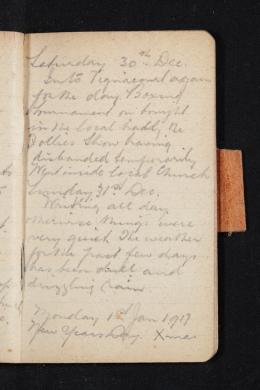 Saturday 30th Dec.
Into Vignacourt again
for the day. Boxing
tournament on tonight
in the local hall, the
Follies Show having
disbanded temporarily
Went inside local Church
Sunday 31st Dec.
Writing all day
otherwise things were
very quiet. The weather
for the past few days
has been dull and
drizzling rain.
Monday 1st Jan 1917
New Years Day. Xmas